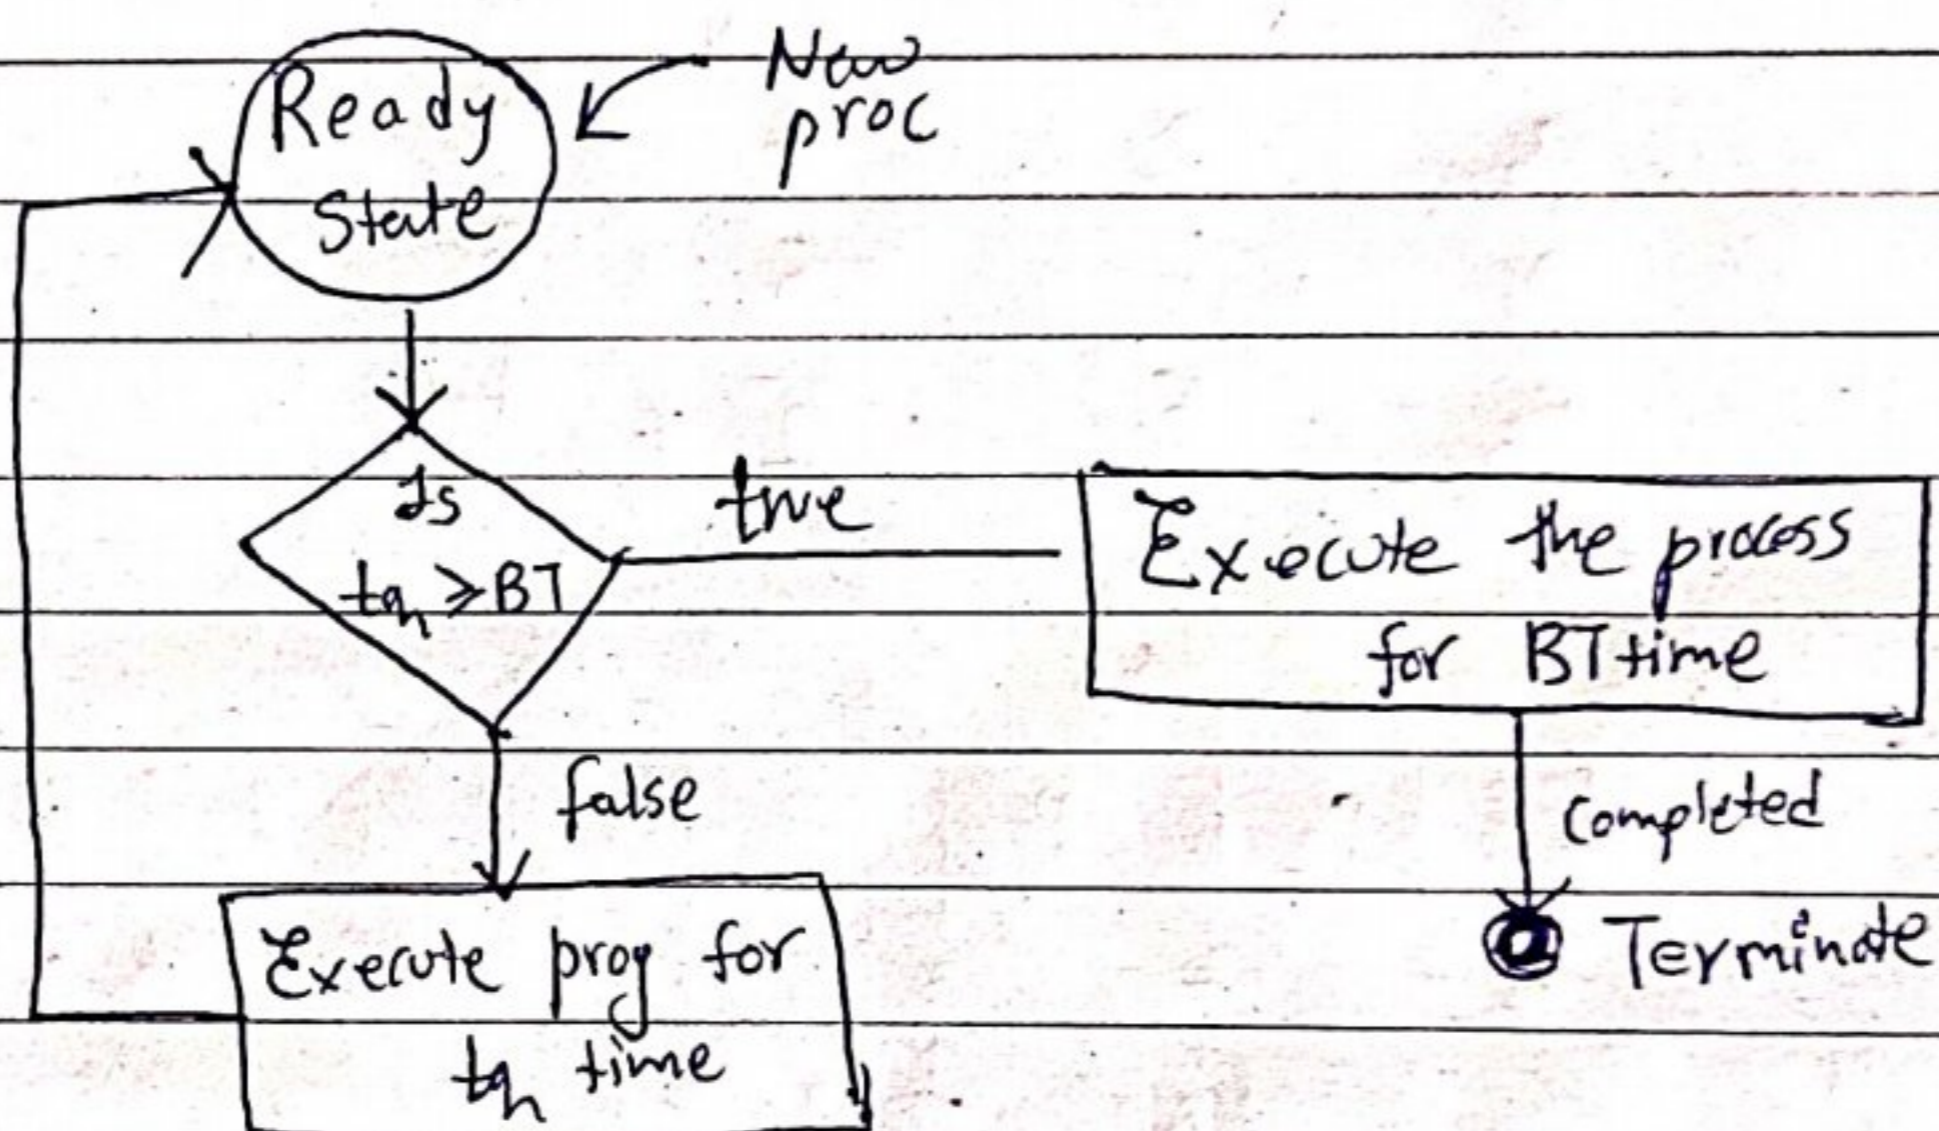 Ready
State
New
proc
Is
tq ≥ BT
true
Execute the process
for BT time
false
completed
Execute prog for
tq time
Terminate